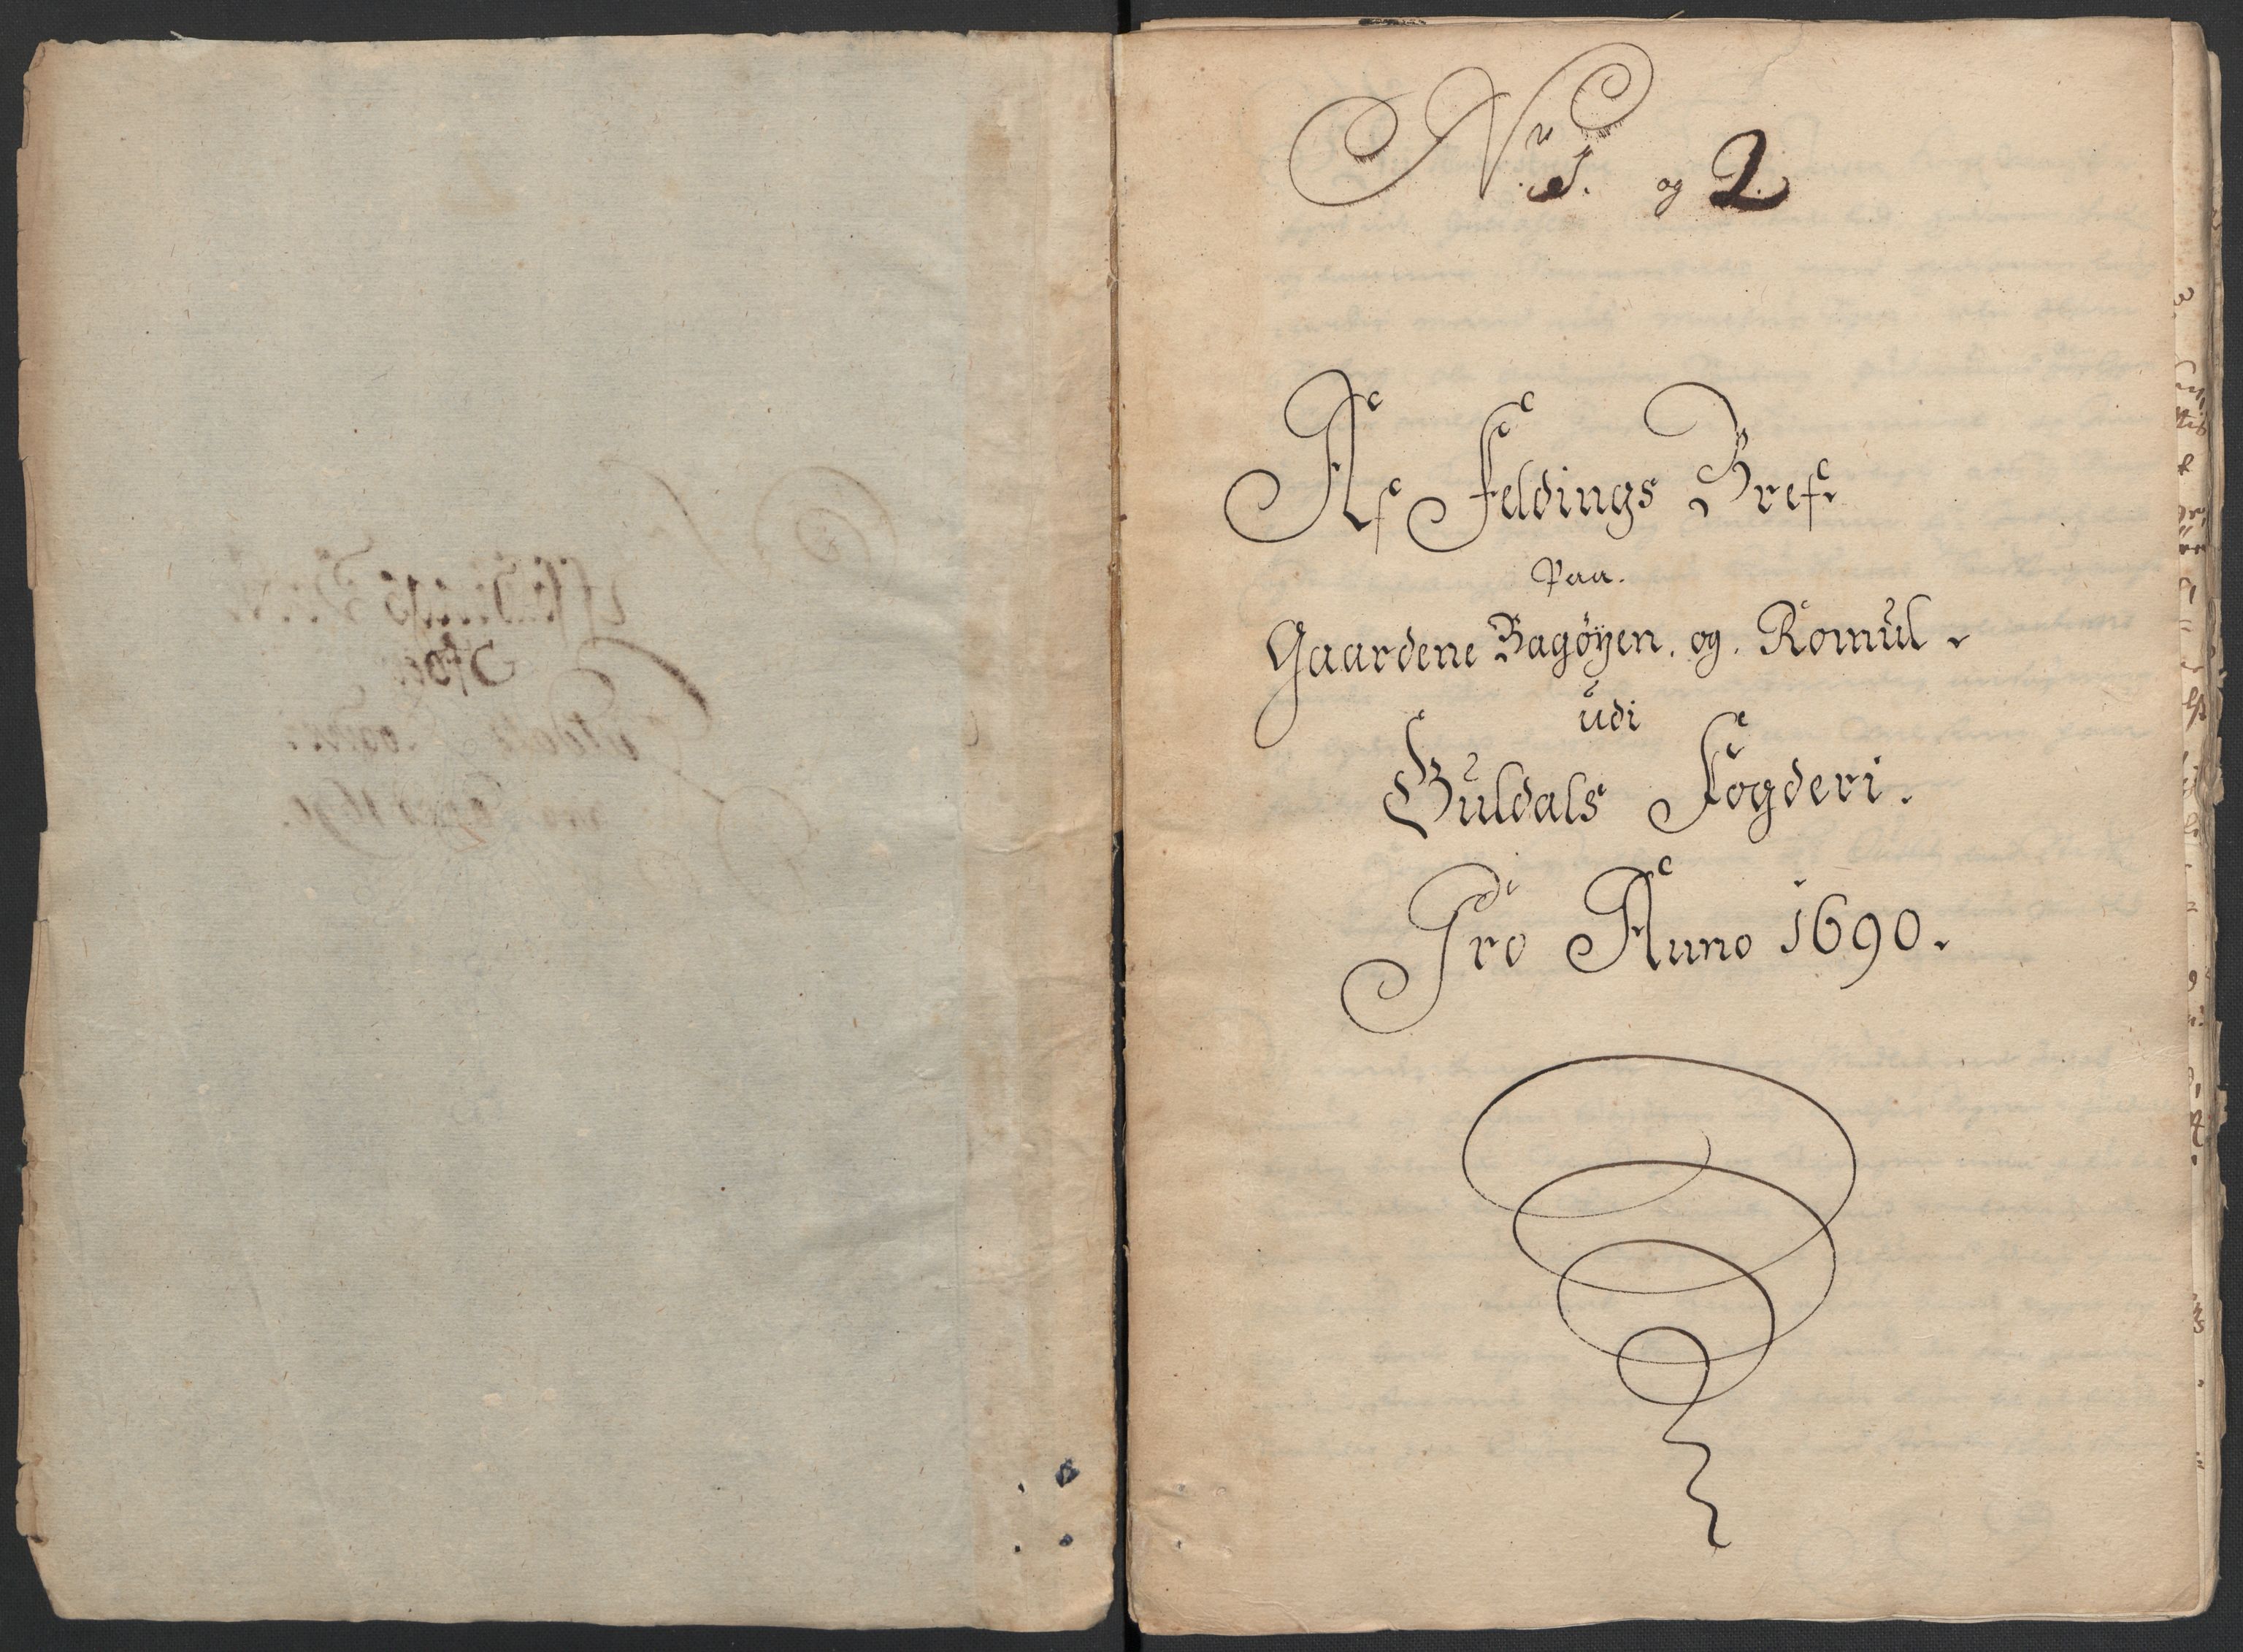 Nr. 1. og 2.
Af Feldings Bref
Paa.
Gaardene Bagøyen. og. Romúl
údi
Gúldals Fogderi.
Pro Anno 1690.